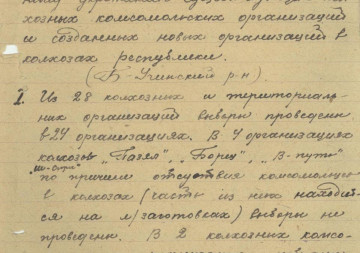 хозных комсомольских организаций
и созданных новых организаций в
колхозах республики.
(Б-Учинский р-н).
1. Из 28 колхозных и территориаль-
ных организаций выборы проведены
в 24 организациях. В 4 организациях
колхозов „ "‚ „Борец", „В-путь"
по причине отсутствия комсомольцев
в колхозах (часть из них находит-
ся на л/заготовках) выборы не
проведены. В 2 колхозных комсо-